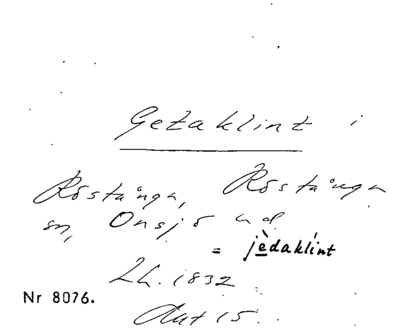 Getaklint i
Röstånga, Röstånga
sn, Onsjö hd
= jèdaklint
Lh. 1832
Nr 8076.
Akt 15.